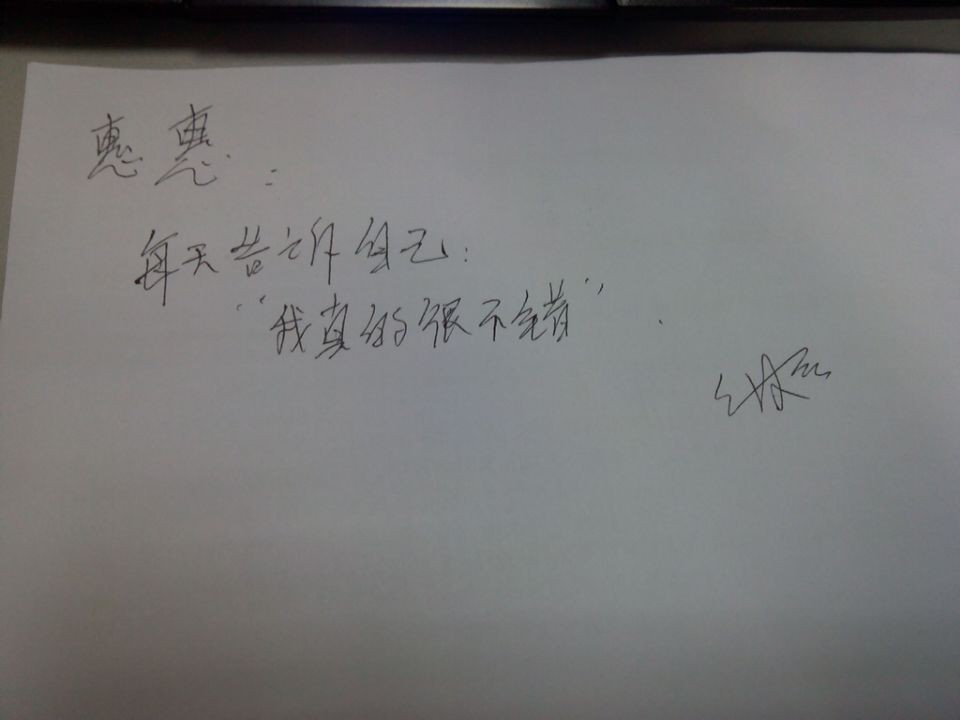 惠惠：
每天告诉自己：
“我真的很不错”.